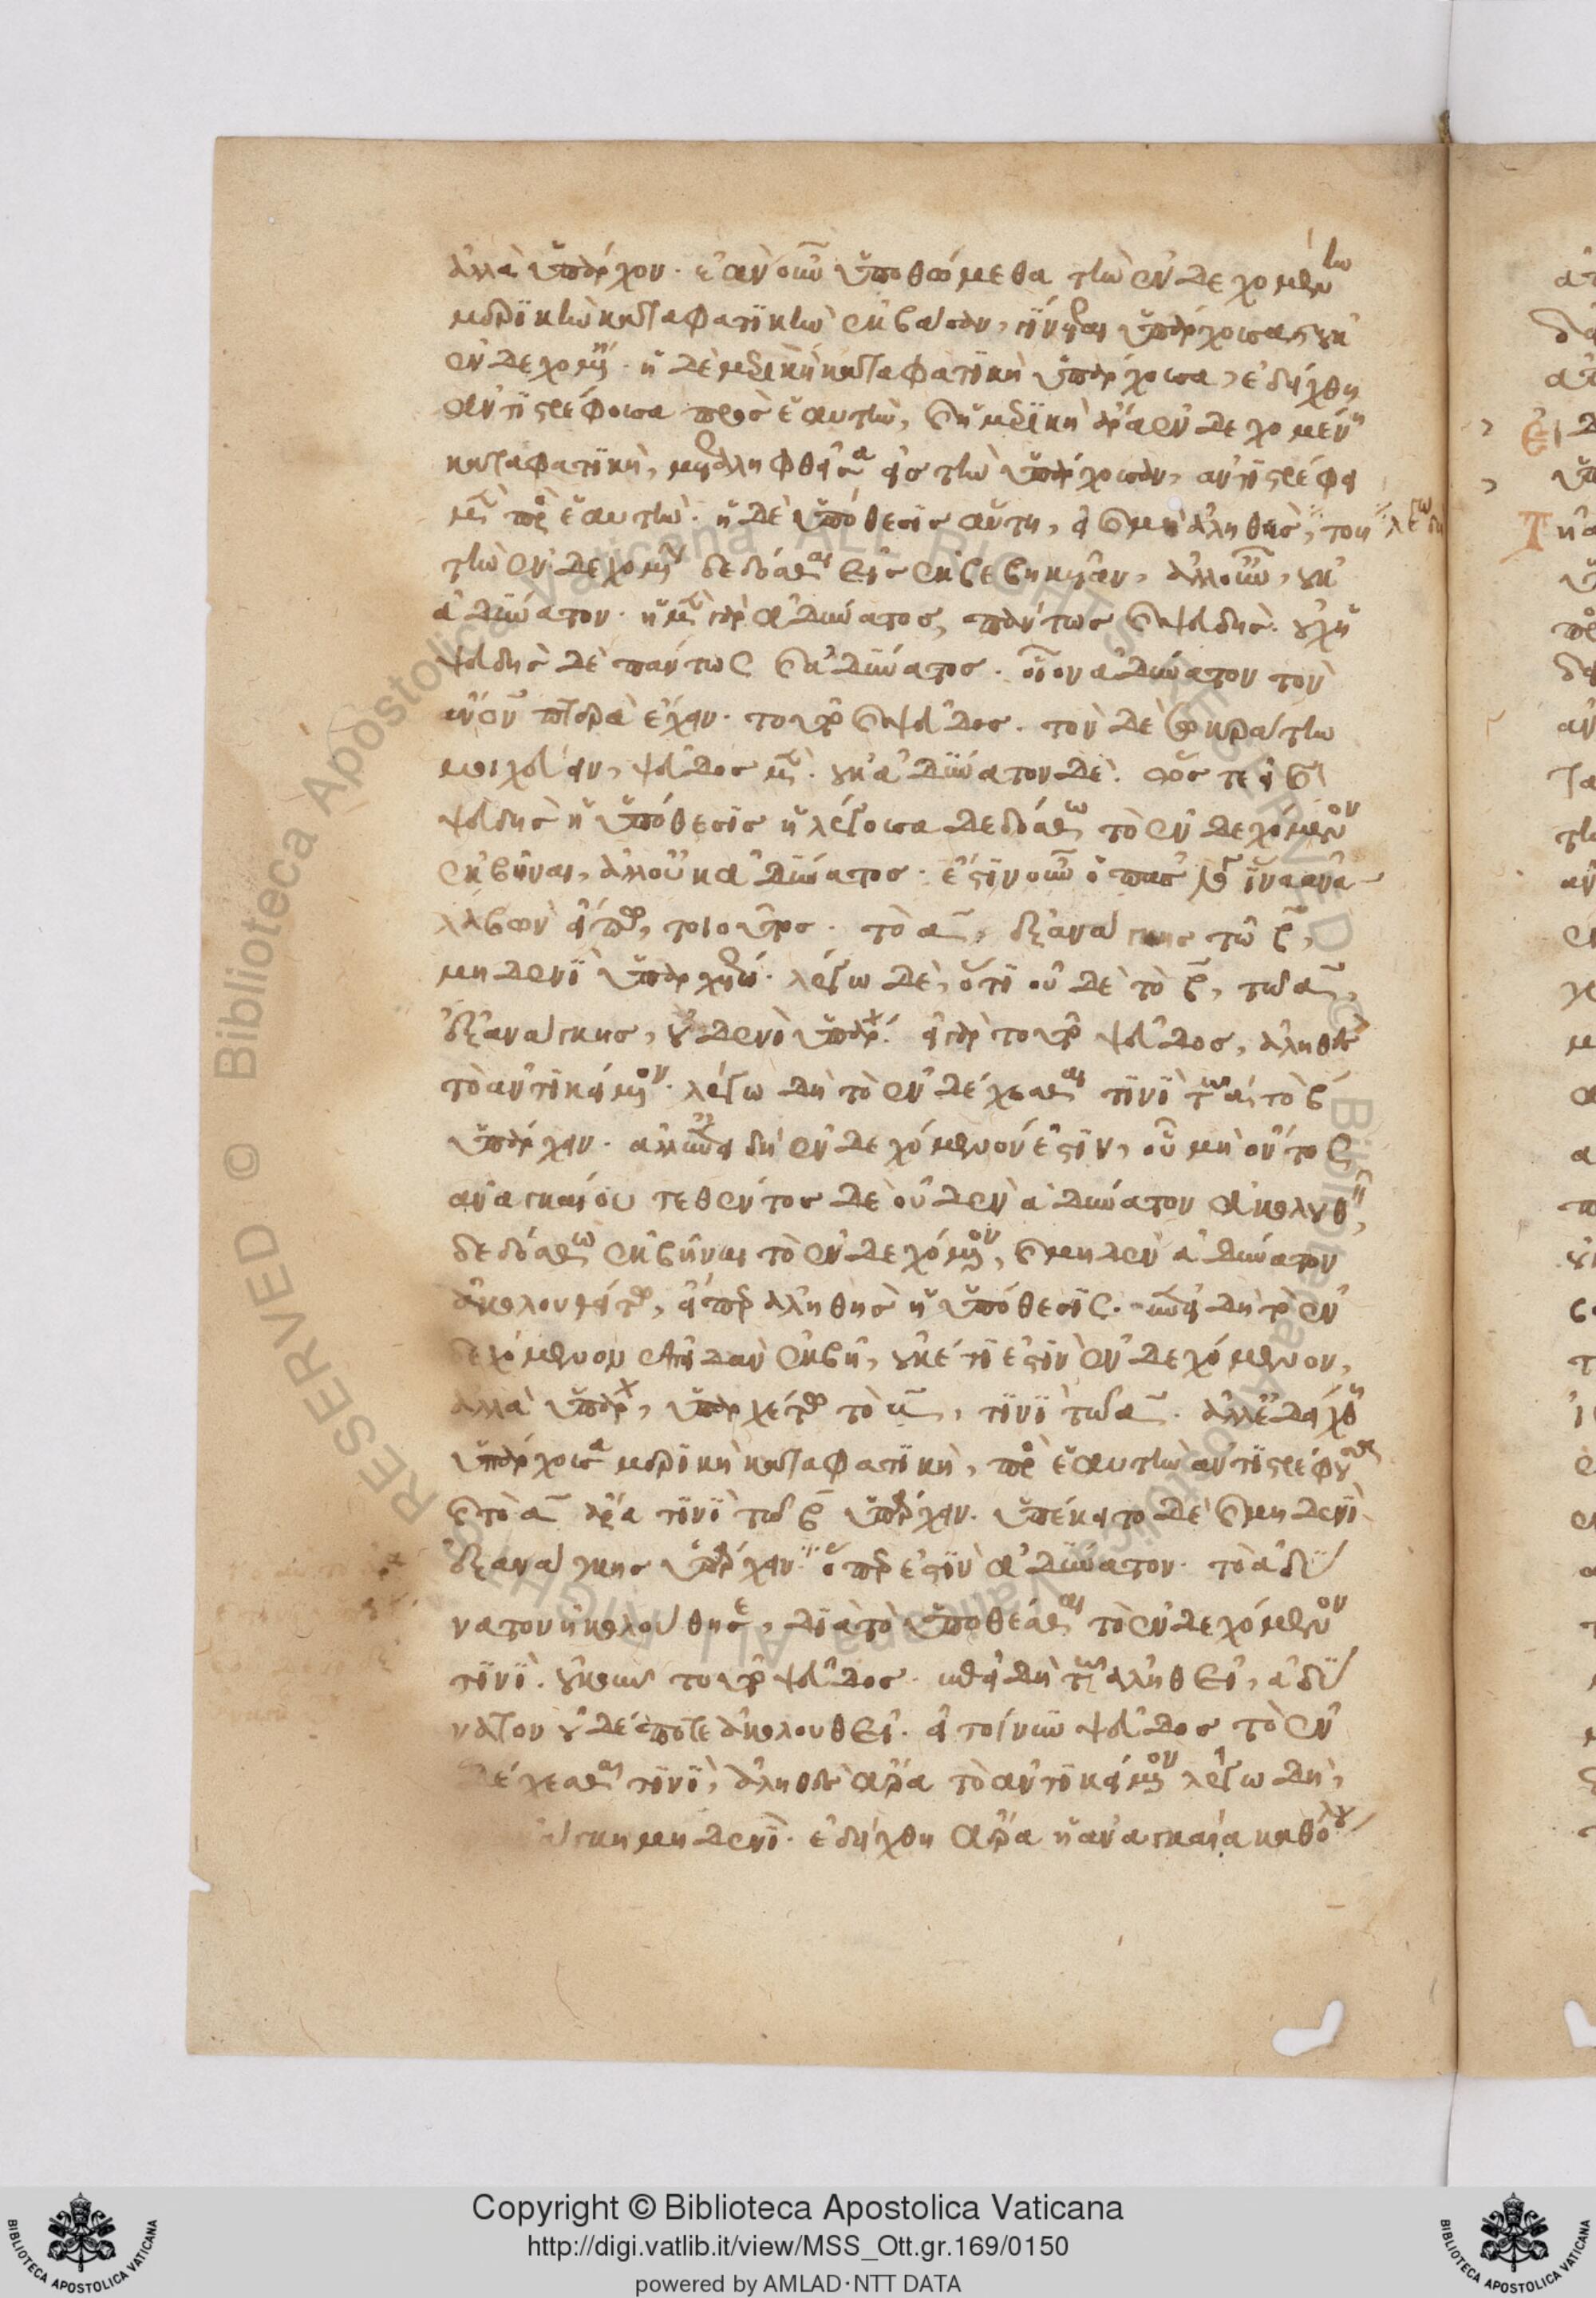 ἀλλὰ ὑπάρχον. ἐὰν οὖν ὑποθώμεθα τὴν ἐνδεχομένην
μερικὴν καταφατικὴν ἐκβᾶσαν, γίνεται ὑπάρχουσα οὐκ
ἐνδεχομένη. ἡ δὲ μερικὴ καταφατικὴ ὑπάρχουσα, ἐδείχθη
ἀντιστρέφουσα πρὸς ἑαυτήν, καὶ ἡ μερικὴ ἄρα ἐνδεχομένη
καταφατικὴ, μεταληφθεῖσα εἰς τὴν ὑπάρχουσαν, ἀντιστρέφει
μὲν πρὸς ἑαυτήν. ἡ δὲ ὑπόθεσις αὕτη, εἰ καὶ μὴ ἀληθὴς,
τὴν ἐνδεχομένην δεδόσθαι εἰς ἐκβεβηκυῖαν, ἀλλ' οὖν, οὐκ
ἀδύνατον. ἡ μὲν γὰρ ἀδύνατος, πάντως καὶ ψευδής. οὐχ ἡ
ψευδὴς δὲ πάντως καὶ ἀδύνατος. οἷον ἀδύνατον τὸν
ἄνθρωπον πτερὰ ἔχειν. τοῦτο καὶ ψεῦδος. τὸν δὲ Σωκράτην
μοιχεύειν, ψεῦδος μὲν. οὐκ ἀδύνατον δέ. ὥστε εἰ καὶ
ψευδὴς ἡ ὑπόθεσις ἡ λέγουσα δεδόσθω τὸ ἐνδεχόμενον
ἐκβῆναι, ἀλλ' οὐκ ἀδύνατος. ἔστιν οὖν ὁ πᾶς λόγος ἵνα ἀνα
λαβὼν εἴπω, τοιοῦτος. τὸ α, ἐξ ἀνάγκης τῷ β,
μηδενὶ ὑπαρχέτω. λέγω δὲ, ὅτι οὐδὲ τὸ β, τῷ α,
ἐξ ἀνάγκης, οὐδενὶ ὑπάρχει. εἰ γὰρ τοῦτο ψεῦδος, ἀληθὲς
τὸ ἀντικείμενον. λέγω δὴ τὸ ἐνδέχεσθαι τινὶ τῶν α, τὸ β
ὑπάρχειν. ἀλλ' ἐπεὶ δὴ ἐνδεχόμενον ἐστιν, οὗ μὴ ὄντος
ἀναγκαίου τεθέντος δὲ οὐδὲν ἀδύνατον ἀκολουθεῖ,
δεδόσθω ἐκβῆναι τὸ ἐνδεχόμενον, καὶ μηδὲν ἀδύνατον
ἀκολουθείτω, εἴπερ ἀληθὴς ἡ ὑπόθεσις. ἐπεὶ δὴ τὸ ἐν
δεχόμενον ἐπειδὰν ἐκβῇ, οὐκέτι ἐστὶν ἐνδεχόμενον,
ἀλλὰ ὑπάρχον, ὑπαρχέτω τὸ β, τινὶ τῷ α. ἀλλ' ἐδείχθη
ὑπάρχουσα μερικὴ καταφατικὴ, πρὸς ἑαυτὴν ἀντιστρέφουσα
καὶ τὸ α ἄρα τινὶ τῷ β ὑπάρχειν. ὑπέκειτο δὲ καὶ μηδενὶ
ἐξ ἀνάγκης ὑπάρχειν. ὅπερ ἐστὶν ἀδύνατον. τὸ ἀδύ
νατον ἠκολούθησε, διὰ τὸ ὑποθέσθαι τὸ ἐνδεχόμενον
τινί. οὐκοῦν τοῦτο ψεῦδος. ἐπειδὴ τῷ ἀληθεῖ, ἀδύ
νατον οὐδέποτε ἀκολουθεῖ. εἰ τοίνυν ψεῦδος τὸ ἐν
δέχεσθαι τινὶ, ἀληθὲς ἄρα τὸ ἀντικείμενον λέγω δὴ,
ἀνάγκη μηδενί. ἐδείχθη ἄρα ἡ ἀναγκαία καθόλου
Copyright © Biblioteca Apostolica Vaticana
http://digi.vatlib.it/view/MSS_Ott.gr.169/0150
powered by AMLAD·NTT DATA